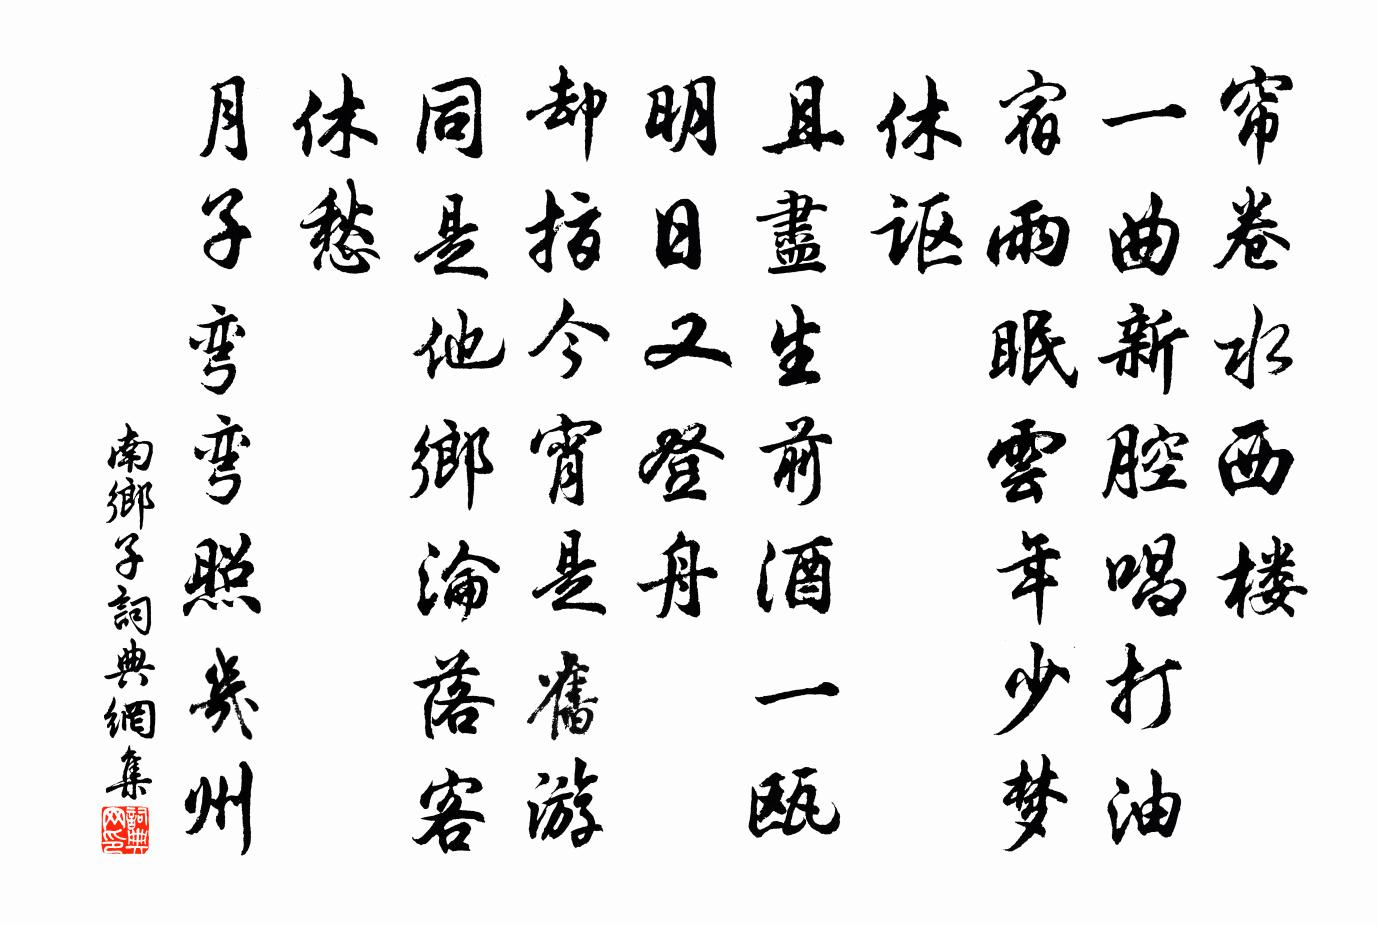 帘卷水西楼
一曲新腔唱打油
宿雨眠雲年少梦
休讴
且盡生前酒一瓯
明日又登舟
却指今宵是舊游
同是他鄉淪落客
休愁
月子弯弯照幾州
南鄉子詞典網集
詞典网印